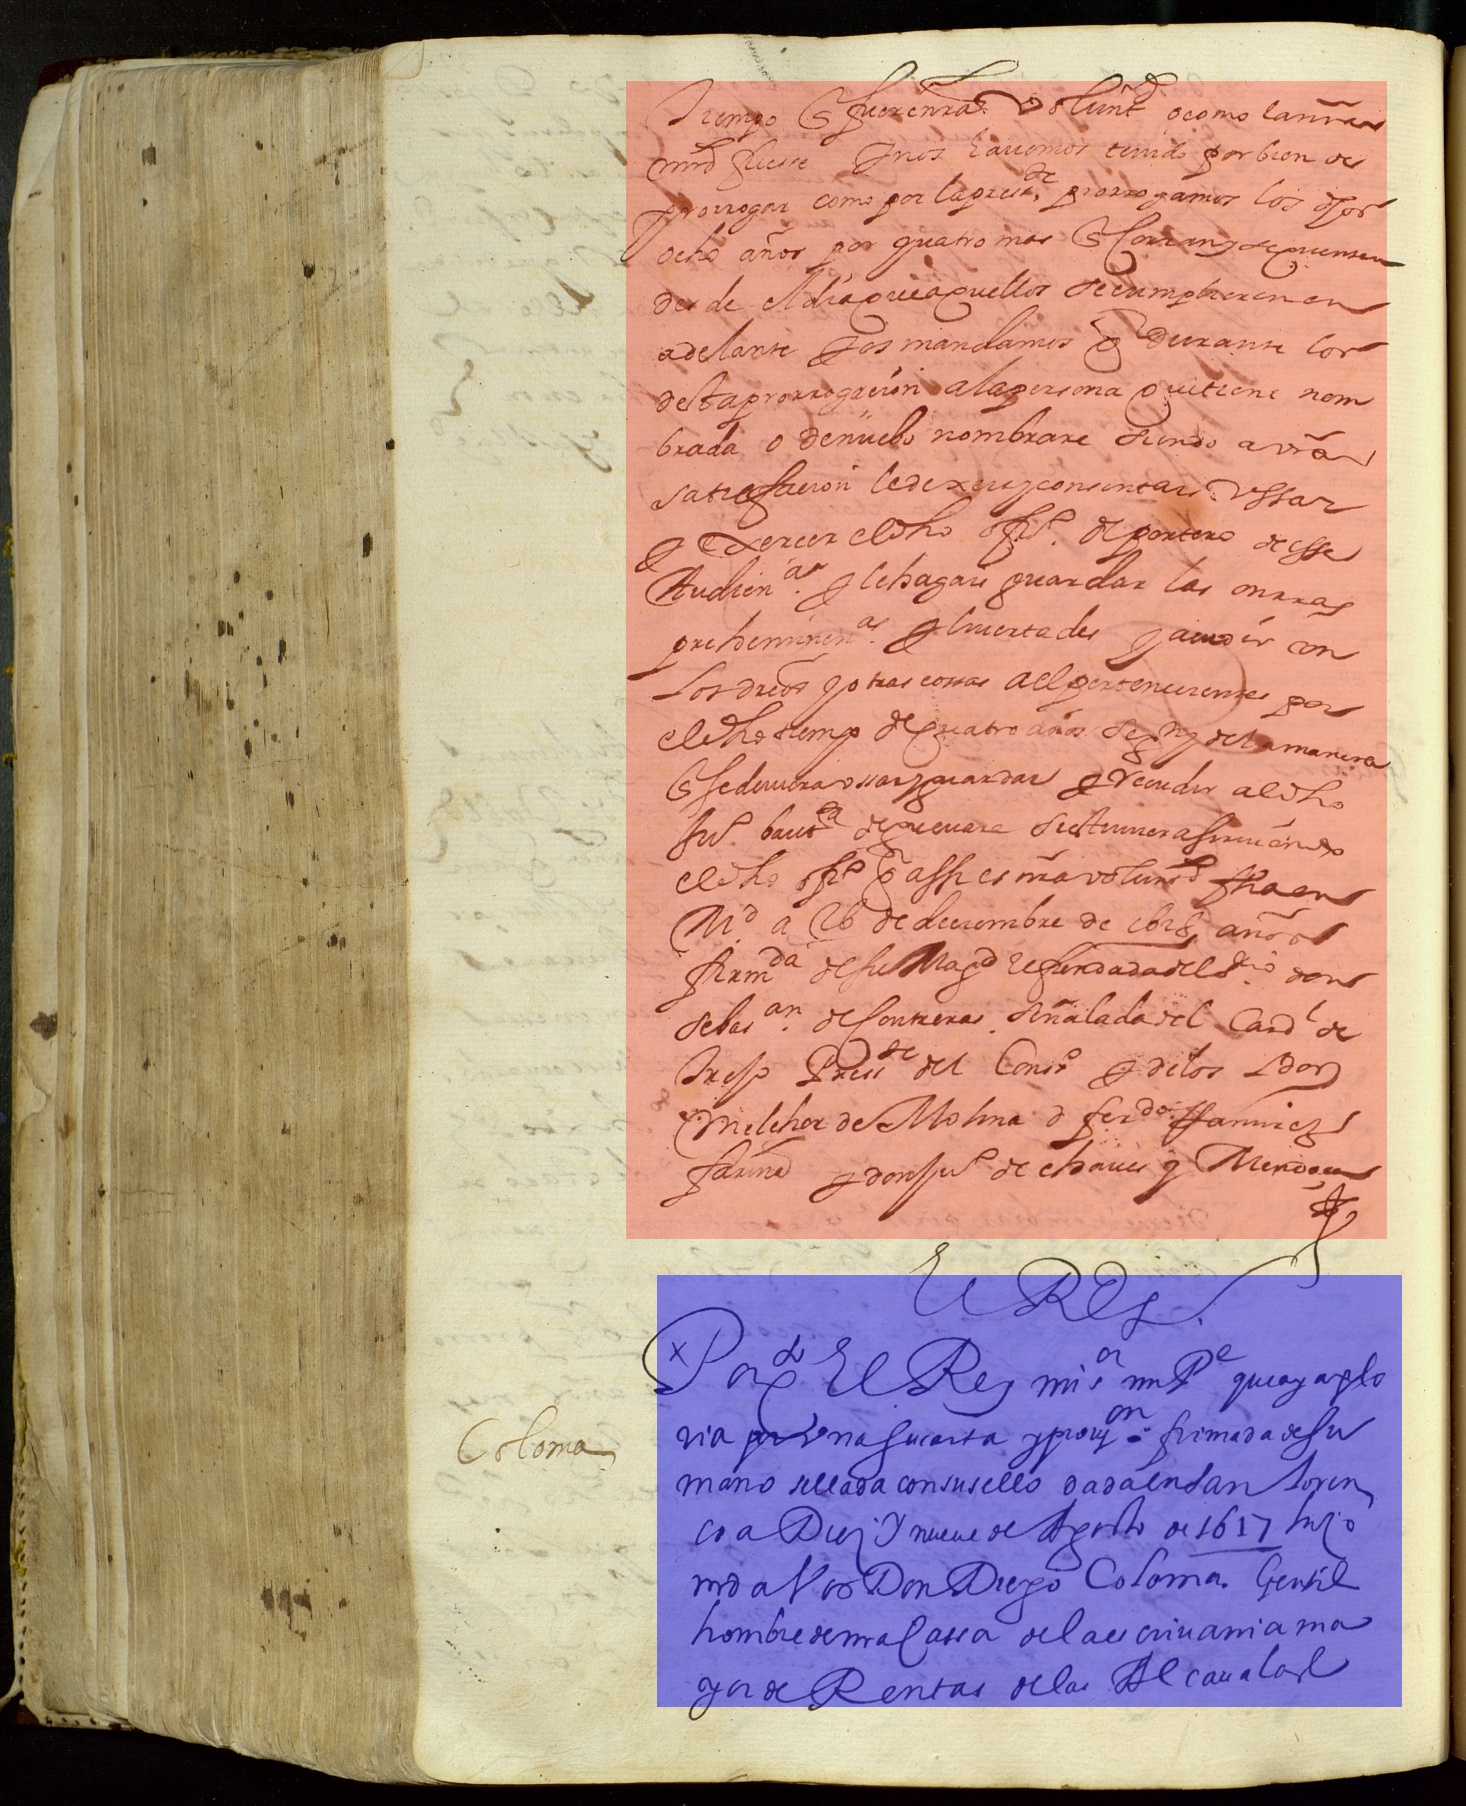 tiempo q fuere nra volunt o como la nra
mrd fuesse y nos hauemos tenido por bien de
prorrogar como por la presste prorrogamos los dhos
ocho años por quatro mas q corran y se quenten
desde el dia que aquellos se cumplieren en
adelante y os mandamos q durante los
desta prorrogacion a la persona que tiene nom
brada o de nuebo nombrare siendo a vra
satisfacion le dexeis y consintais vssar
y exercer el dho offo de portero de esse
Audienas y le hagais guardar las onrras
preheminenas y liuertades y acudir con
los drechos y otras cossas a el pertenecientes por
el dho tiempo de quatro años segn y de la manera
q se deuiera vssar guardar y recudir al dho
Juo bauta de gueuara si estuuiera siruiendo
el dho offo q assi es nra voluntd fha en
Md a 26 de deciembre de 1628 años
firmda de su Magd refrendada del Srio don
sebasan de contreras señalada del Cardl de
trejo Presste del Conso y de los Ldos
Melchor de Molina d ferdo Ramirez
fariñas y don Juo de chaues y Mendoça
El Rey
x Por qto El Rey mi sor mi Pe que aya glo
ria por vna su carta y prouon firmada de su
mano sellada con su sello dada en San loren
ço a Diez y nueue de Agosto de 1617 hizo
mrd a Vos Don Diego Coloma Gentil
Coloma
hombre de nra Cassa de la escriuania ma
yor de Rentas de las Alcaualas